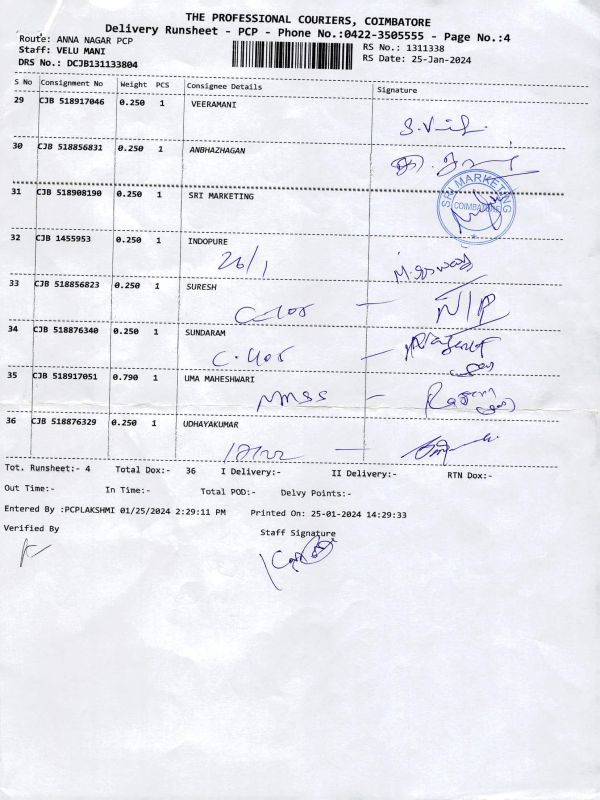 THE PROFESSIONAL COURIERS, COIMBATORE
Delivery Runsheet - PCP - Phone No.:0422-3505555 - Page No.:4
Route: ANNA NAGAR PCP RS No.: 1311338
Staff: VELU MANI RS Date: 25-Jan-2024
DRS No.: DCJB131133804
S No Consignment No Weight PCS Consignee Details Signature
29 CJB 518917046 0.250 1 VEERAMANI
30 CJB 518856831 0.250 1 ANBHAZHAGAN
31 CJB 518908190 0.250 1 SRI MARKETING
SRI MARKETING
COIMBATORE
32 CJB 1455953 0.250 1 INDOPURE
26/1
33 CJB 518856823 0.250 1 SURESH
N/P
34 CJB 518876340 0.250 1 SUNDARAM
35 CJB 518917051 0.790 1 UMA MAHESHWARI
36 CJB 518876329 0.250 1 UDHAYAKUMAR
Tot. Runsheet:- 4 Total Dox:- 36 I Delivery:- II Delivery:- RTN Dox:-
Out Time:- In Time:- Total POD:- Delvy Points:-
Entered By :PCPLAKSHMI 01/25/2024 2:29:11 PM Printed On: 25-01-2024 14:29:33
Verified By Staff Signature